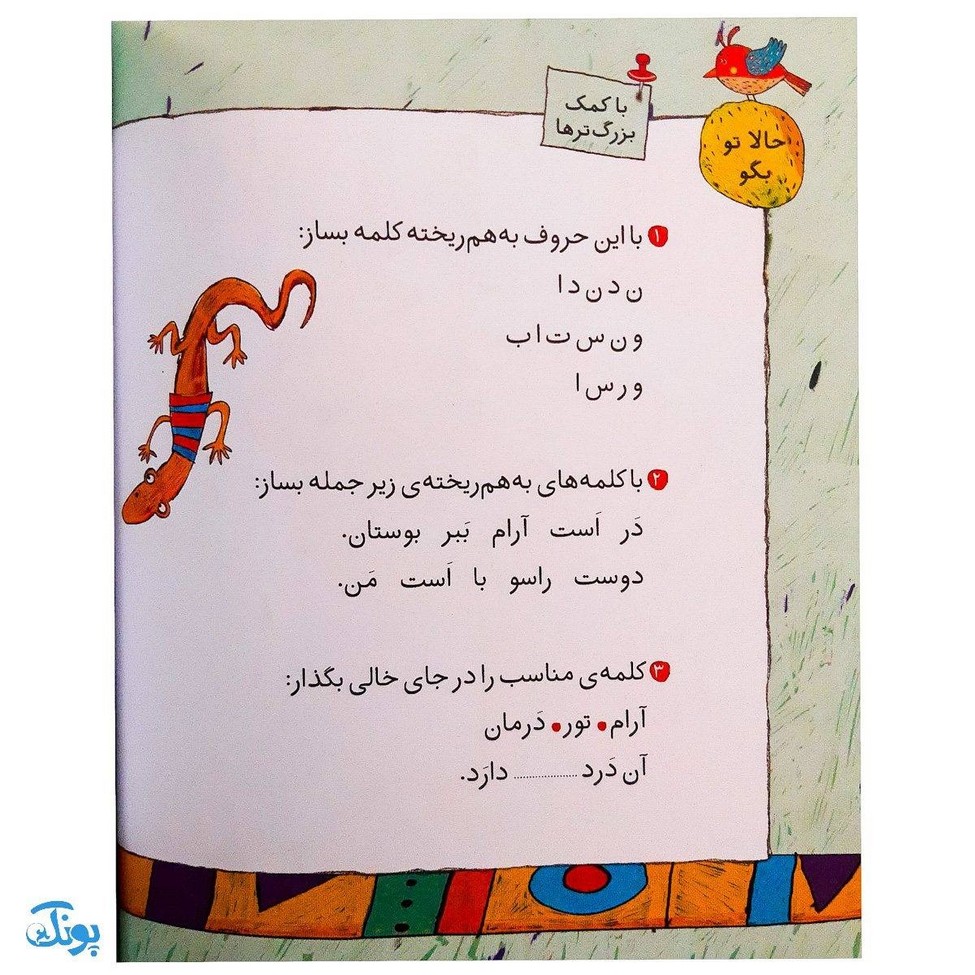 با کمک
بزرگ‌ترها
حالا تو
بگو
۱ با این حروف به‌هم‌ریخته کلمه بساز:
ن د ن د ا
و ن س ت ا ب
و ر س ا
۲ با کلمه‌های به‌هم‌ریخته‌ی زیر جمله بساز:
دَر اَست آرام بَبر بوستان.
دوست راسو با اَست مَن.
۳ کلمه‌ی مناسب را در جای خالی بگذار:
آرام • تور • دَرمان
آن دَرد .................... دارَد.
پونک